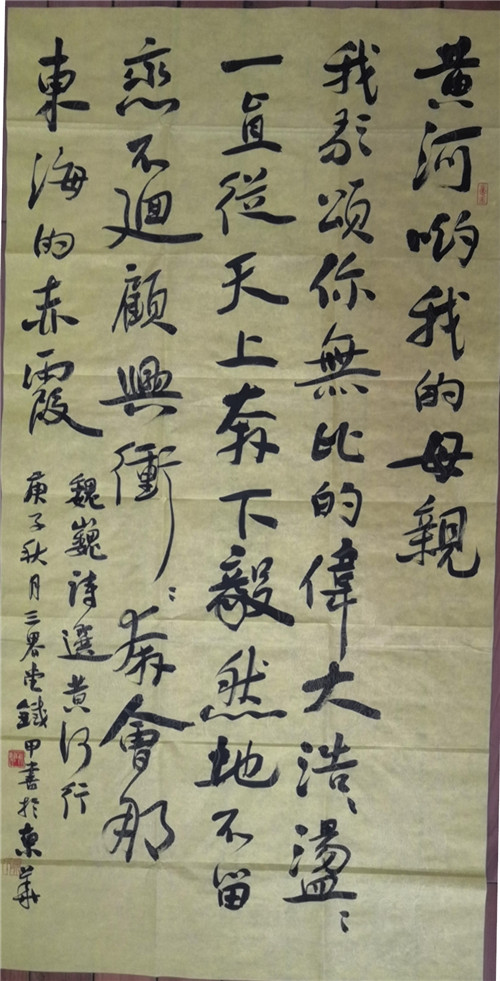 黄河哟我的母親
我歌頌你無比的偉大浩﹅盪﹅
一直從天上奔下毅然地不留
恋不廻顧興衝﹅奔會那
東海的赤霞
魏巍詩選黄河行
庚子秋月三畧堂鐵甲書於東華